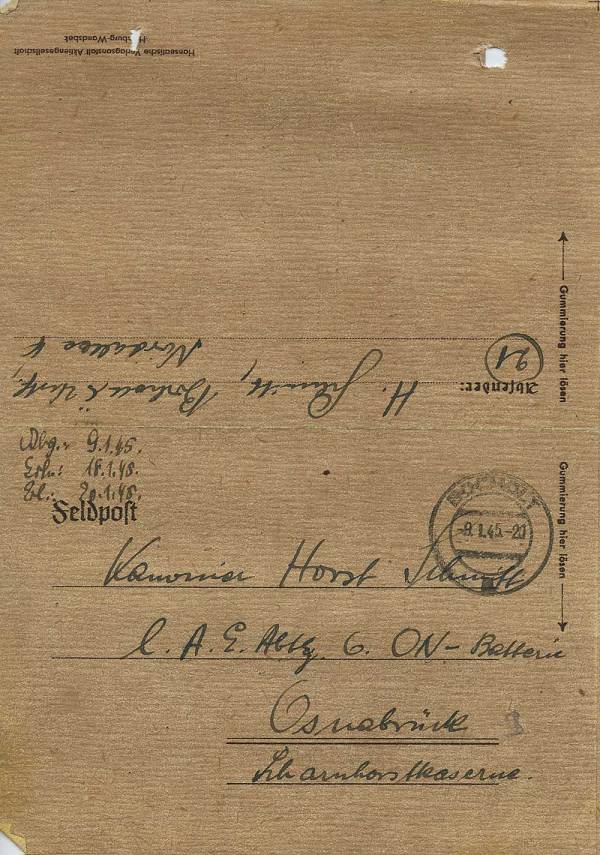 Hanseatische Verlagsanstalt Aktiengesellschaft
Hamburg-Wandsbek
Gummierung hier lösen
21
Absender:
H. Schmitt, Bocholt i. Westf.,
Nordallee 4
Abg.: 9.1.45.
Erh.: 18.1.45.
Bl.: 20.1.45.
Feldpost
BOCHOLT
-9.1.45.-20
Gummierung hier lösen
Kanonier Horst Schmitt
l. A. E. Abtlg. 6. ON-Batterie
Osnabrück
Scharnhorstkaserne.